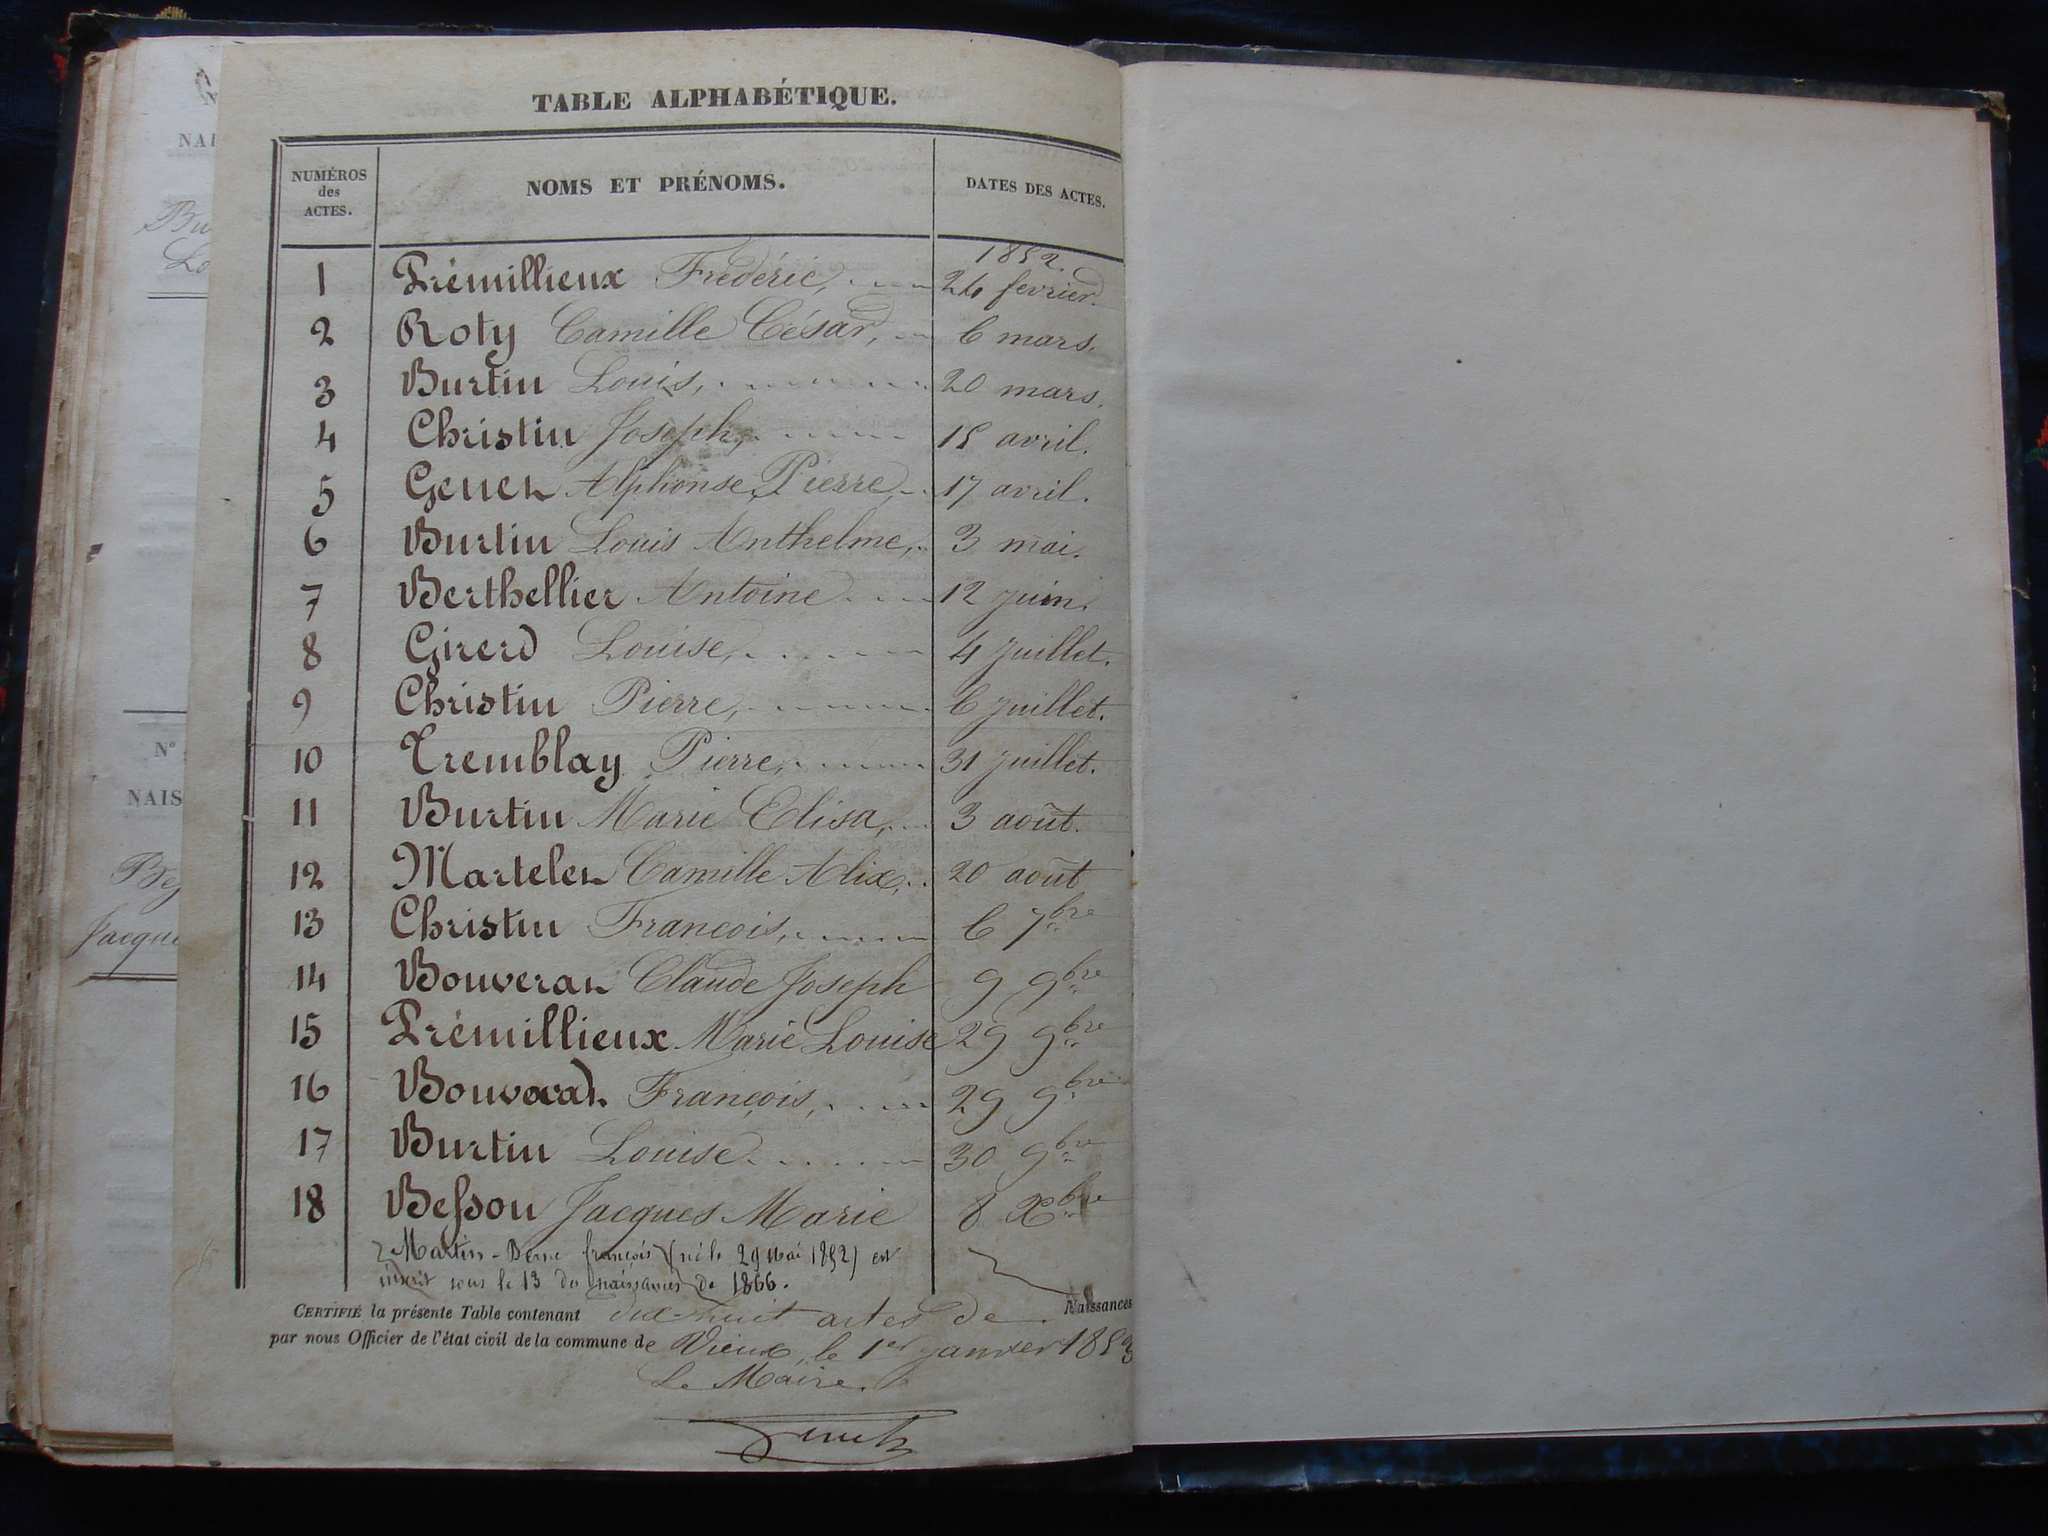 TABLE ALPHABÉTIQUE.
NUMÉROS des ACTES. NOMS ET PRÉNOMS. DATES DES ACTES.
1852.
1 Prémillieux Frédéric, 24 fevrier.
2 Roty Camille César, 6 mars.
3 Burtin Louis, 20 mars.
4 Christin Joseph, 15 avril.
5 Genet Alphonse Pierre, 17 avril.
6 Burtin Louis Anthelme, 3 mai.
7 Berthellier Antoine 12 juin.
8 Girerd Louise, 4 juillet.
9 Christin Pierre, 6 juillet.
10 Tremblay Pierre, 31 juillet.
11 Burtin Marie Elisa, 3 août.
12 Martelet Camille Alix, 20 août
13 Christin François, 6 7bre
14 Bouverat Claude Joseph 9 9bre
15 Prémillieux Marie Louise 29 9bre
16 Bouverat François, 29 9bre
17 Burtin Louise 30 9bre
18 Besson Jacques Marie 8 Xbre
Martin- françois (né le 29 mai 1852) est
inscrit sous le 13 des naissances de 1866.
CERTIFIÉ la présente Table contenant dix-huit actes de Naissances
par nous Officier de l'état civil de la commune de Vieux, le 1er janvier 1853
Le Maire.
NAI
Bu
Lo
N°
NAIS
Bey
Jacque